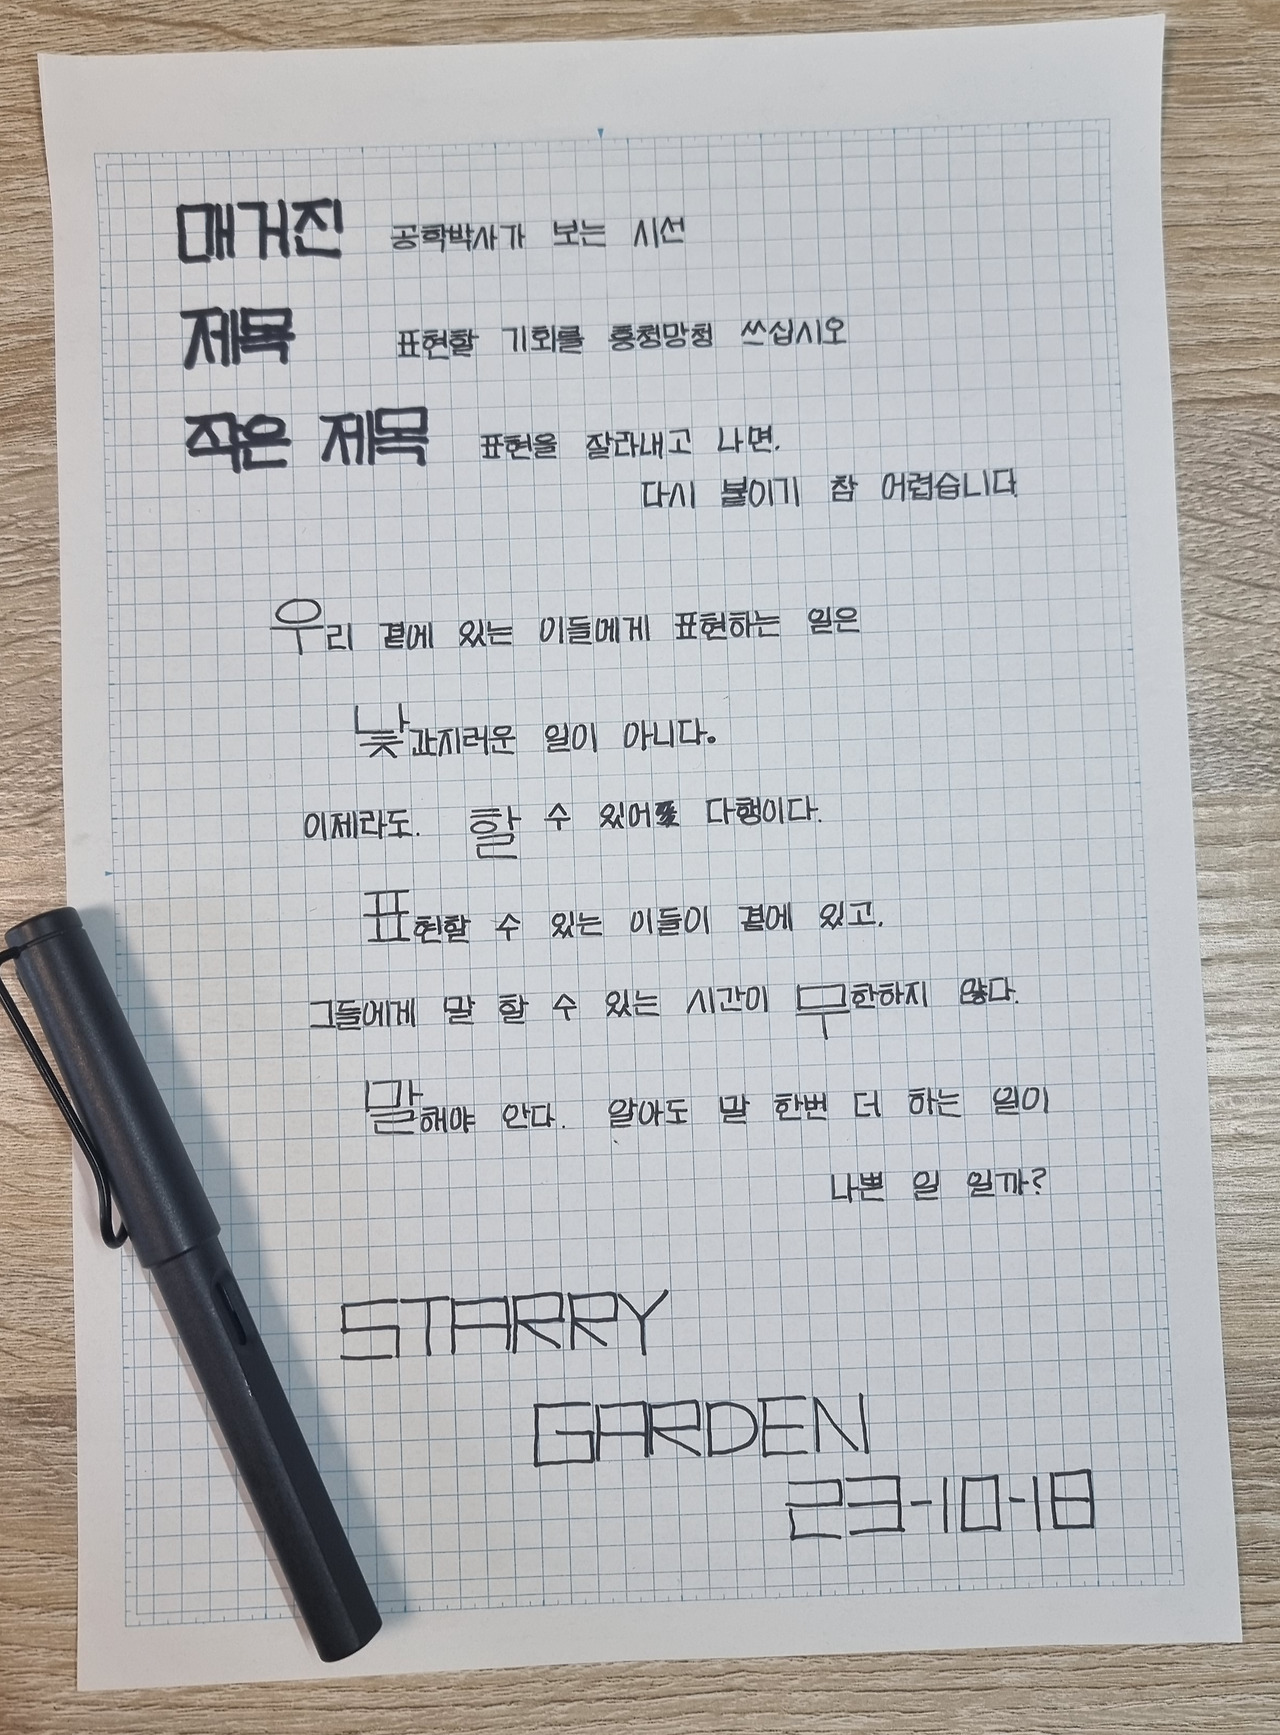 매거진 공학박사가 보는 시선
제목 표현할 기회를 흥청망청 쓰십시오
작은 제목 표현을 잘라내고 나면,
다시 붙이기 참 어렵습니다
우리 곁에 있는 이들에게 표현하는 일은
낯간지러운 일이 아니다.
이제라도. 할 수 있어 다행이다.
표현할 수 있는 이들이 곁에 있고,
그들에게 말 할 수 있는 시간이 무한하지 않다.
말해야 안다. 알아도 말 한번 더 하는 일이
나쁜 일 일까?
STARRY
GARDEN
23-10-18